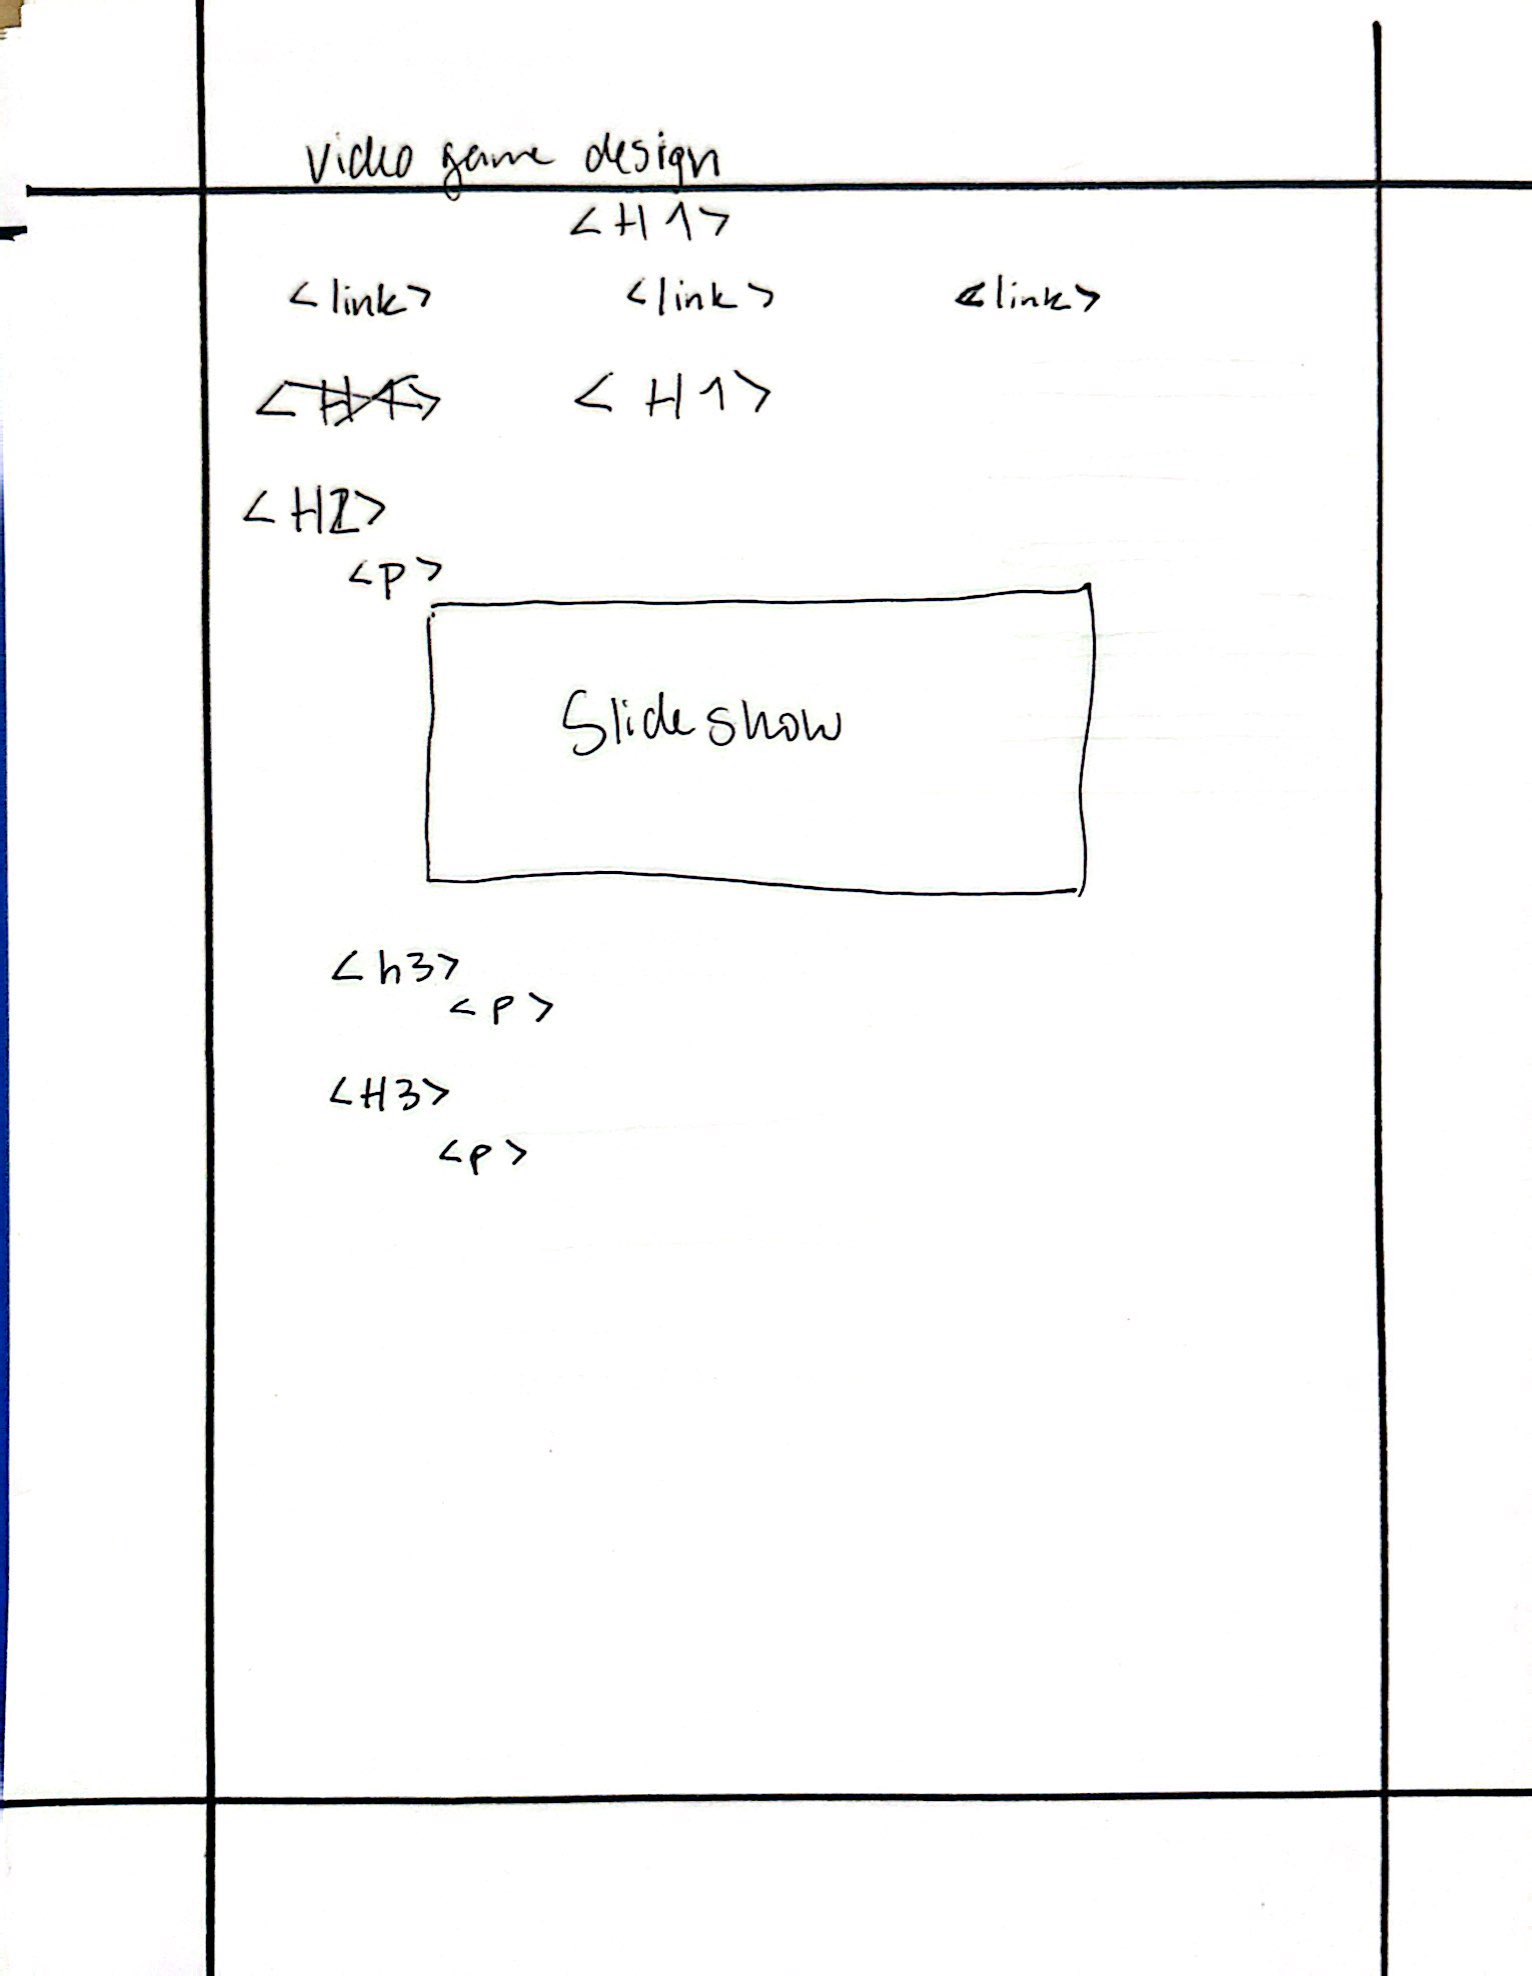 video game design
<H1>
<link> <link> <link>
<H1> <H1>
<H2>
<p>
Slideshow
<h3>
<p>
<H3>
<p>